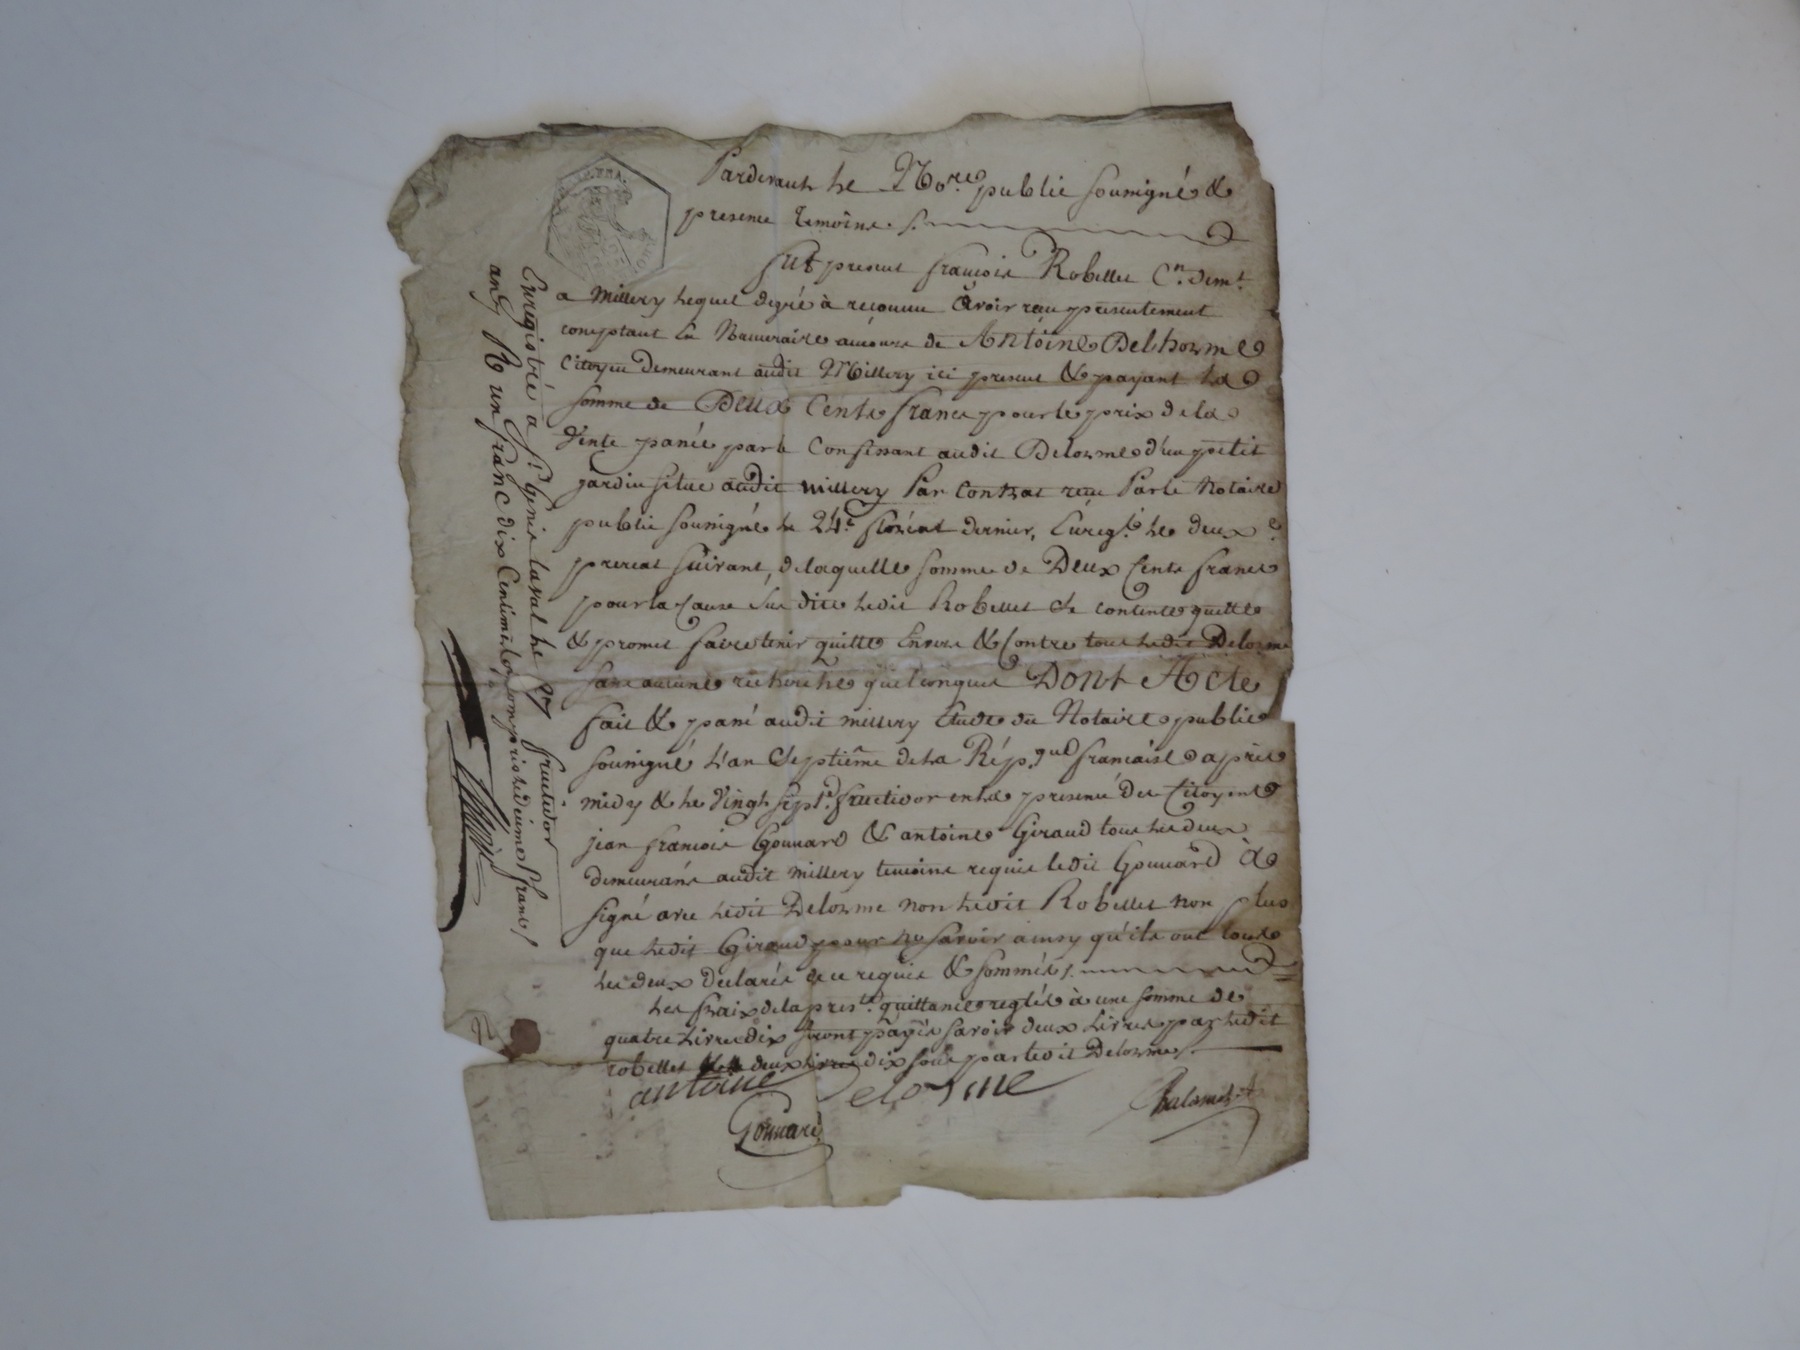 Pardevant Le Nore. public soussigné &
presence temoins.
fut present françois Robellet Cn. demt.
a Millery lequel degré à reconnu avoir reçu presentement
comptant En Numeraire au cours de Antoine Delhorme
Citoyen demeurant audit Millery ici present & payant La
somme de Deux Cents francs pour le prix de la
Vente passée par le Confessant audit Delorme d'un petit
jardin situe audit millery Par Contrat reçu Par le Notaire
public soussigné le 24e. floréal dernier, Enregé. le deux
prereal suivant, de laquelle somme de Deux Cents francs
pour la Cause sus dite ledit Robellet se contente quitte
& promet faire tenir quitte Envers & Contre tous ledit Delorme
sans aucune recherche quelconque Dont Acte
fait & passé audit millery Etude du Notaire public
soussigné L'an Septième de La Répque. française après
midy & le Vingt sept. fructidor en la presence des Citoyens
jean françois Gounard & antoine Giraud tous les deux
demeurans audit millery temoins requis ledit Gounard à
signé avec ledit Delorme non ledit Robellet non plus
que ledit Giraud pour ne savoir ainsy qu'ils ont tous
les deux déclarés de ce requis & sommés.
Les fraix de la preste. quittance reglés à une somme de
quatre Livres dix seront payés savoir deux Livres par ledit
robellet deux Livres dix sous par ledit Delorme.
antoine Delorme
Gounard
Enregistré a St. Genis laval le 27 fructidor
an 7 R un franc dix Centimes compris le décime